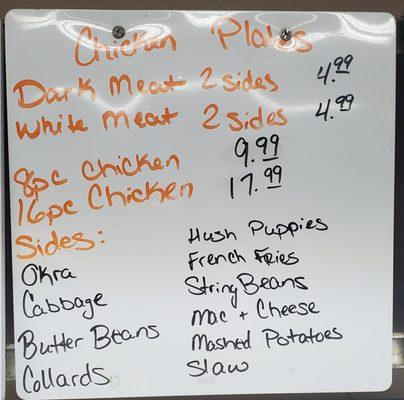 Chicken Plates
Dark Meat 2 sides 4.99
White Meat 2 sides 4.99
8pc Chicken 9.99
16pc Chicken 17.99
Sides:
Okra
Cabbage
Butter Beans
Collards
Hush Puppies
French Fries
String Beans
Mac + Cheese
Mashed Potatoes
Slaw